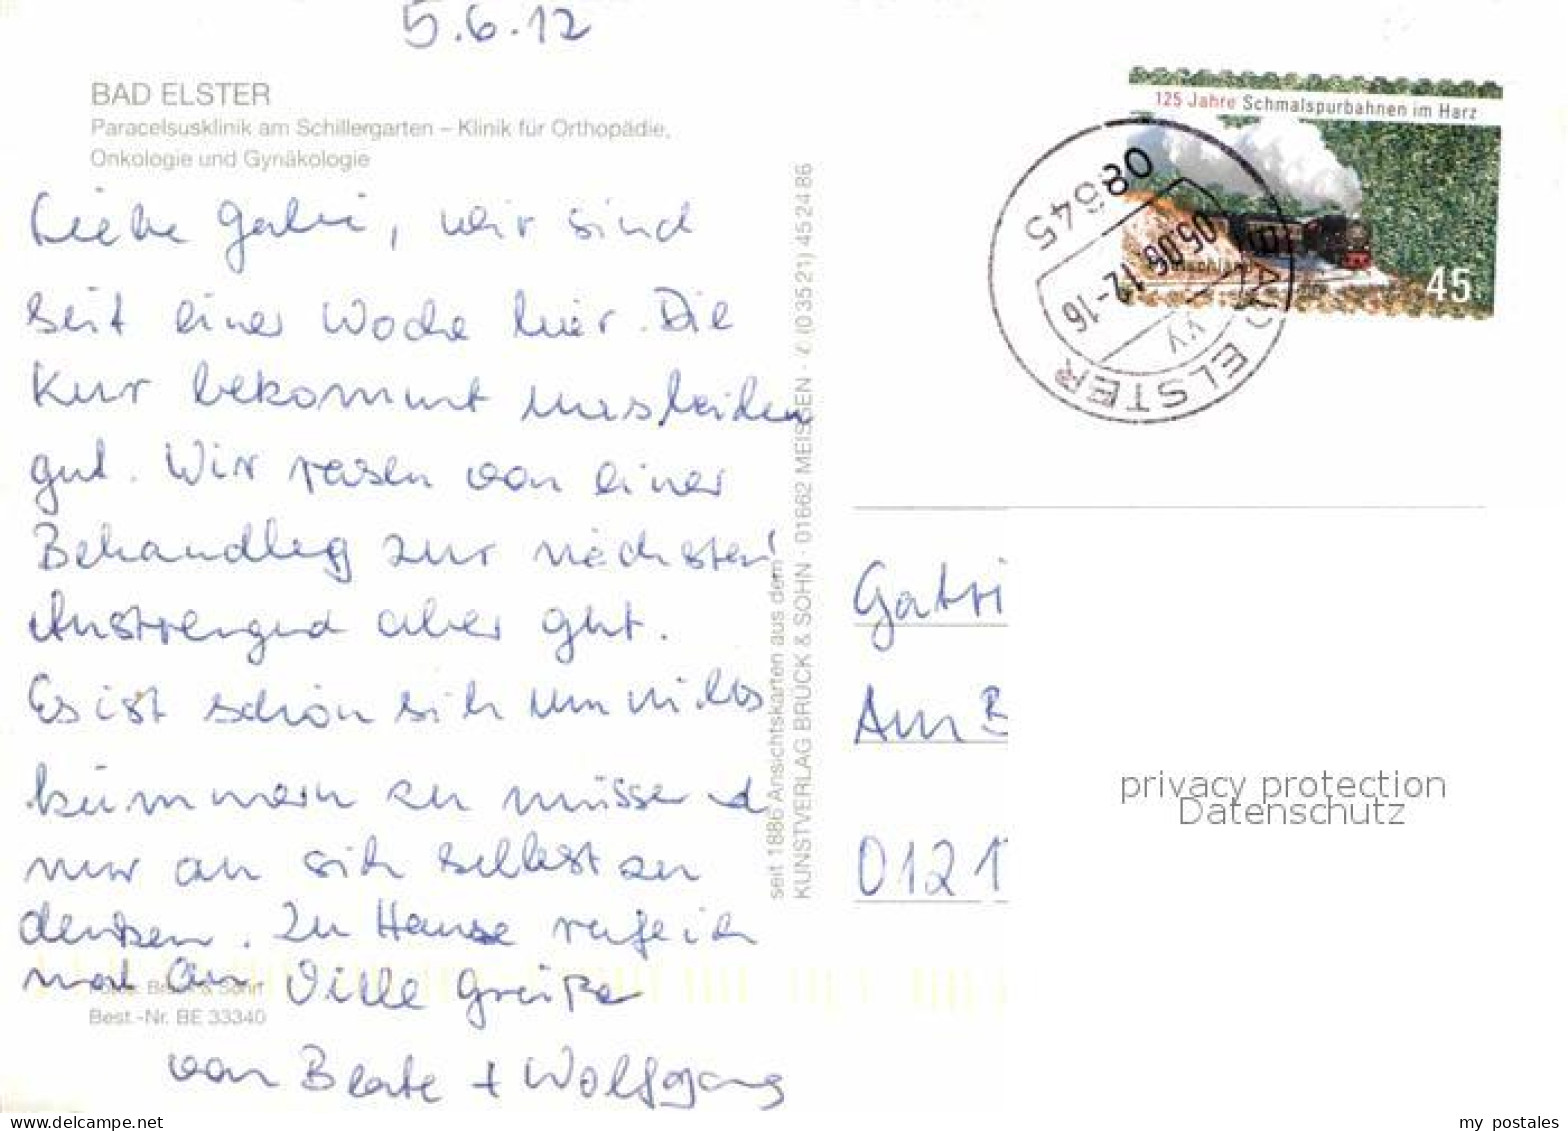 5.6.12
BAD ELSTER
Paracelsusklinik am Schillergarten – Klinik für Orthopädie,
Onkologie und Gynäkologie
Liebe Gabi, wir sind
seit einer Woche hier. Die
Kur bekommt uns beiden
gut. Wir rasen von einer
Behandlung zur nächsten!
Anstrengend aber gut.
Es ist schön sich um nichts
kümmern zu müssen und
nur an sich selbst zu
denken. Zu Hause rufe ich
mal an. Viele Grüße
von Beate + Wolfgang
Foto: Brück & Sohn
Best.-Nr. BE 33340
seit 1886 Ansichtskarten aus dem
KUNSTVERLAG BRÜCK & SOHN · 01662 MEISSEN · ✆ (0 35 21) 45 24 86
125 Jahre Schmalspurbahnen im Harz
Deutschland
45
08645
05.06.12-16
vv
BAD ELSTER
Gabri
Am B
0121
privacy protection
Datenschutz
www.delcampe.net
my_postales